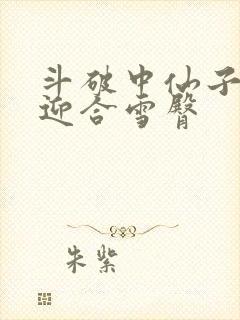 斗破中仙子
迎合雪臀
朱紫